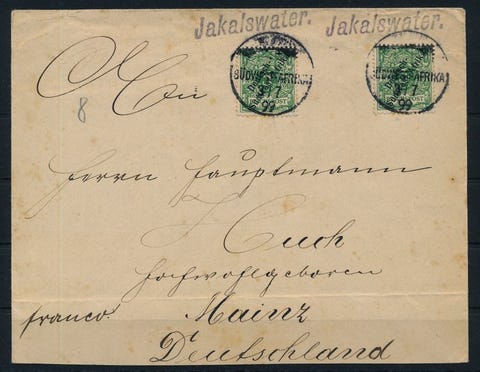 Jakalswater. Jakalswater.
SÜDWEST-AFRIKA SÜDWEST-AFRIKA
3/7 3/7
99 99
An
8
Herrn Hauptmann
Cuch
Hochwohlgeboren
franco. Mainz
Deutschland